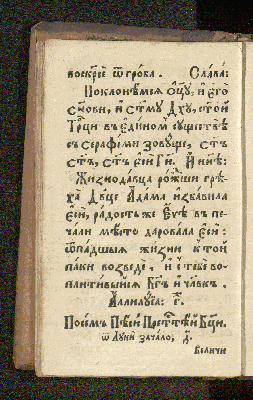 воскр҃се ѿ гроба. Слава:
Поклонимсѧ ѻц҃ꙋ, и҆ е҆гѡ
сн҃ови, и҆ ст҃мꙋ дх҃ꙋ, ст҃ой
трⷪ҇цы въ є҆диномъ сꙋществѣ
съ серафимы зовꙋще, ст҃ъ
ст҃ъ, ст҃ъ є҆сѝ гдⷭ҇и. И҆ нн҃ѣ:
Жизнодавца рождши грѣ-
ха̀ дв҃це а҆дама и҆збавила
є҆сѝ, радость же є҆вѣ въ пе-
чали мѣсто даровала є҆сѝ:
ѿпадшыѧ жизни к той
паки возведе, и҆з̾ тебе во-
плотивыйсѧ бг҃ъ и҆ чл҃вкъ.
А҆ллилꙋїа: г҃.
Поемъ пѣсни прест҃ѣй бц҃и.
ѿ лꙋки зачало, д҃.
величи